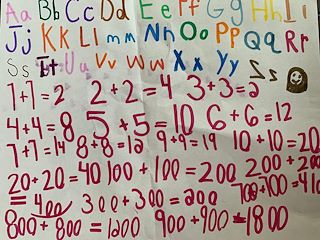 Aa Bb Cc Dd Ee Ff Gg Hh Ii
Jj Kk Ll mm Nn Oo Pp Qq Rr
Ss Tt Uu Vv Ww Xx Yy Zz
1+1=2 2+2=4 3+3=2
4+4=8 5+5=10 6+6=12
7+7=14 8+8=12 9+9=19 10+10=20
20+20=40 100+100=200 200+200
=400 300+300=200 700+100=410
800+800=1200 900+900=1800